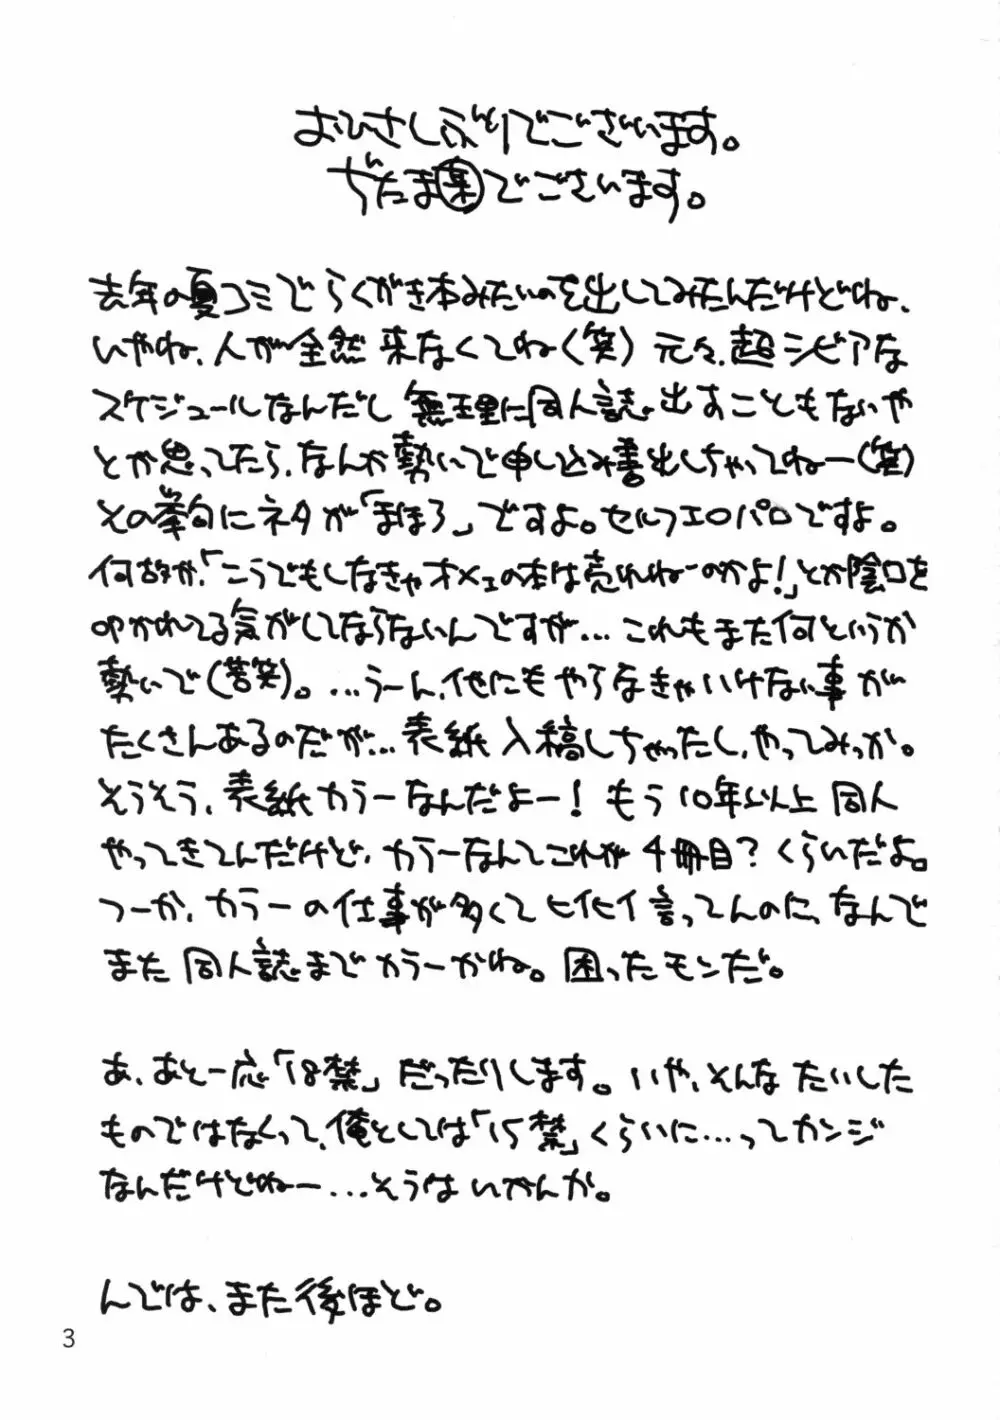 おひさしぶりでございます。
ぢたま㊌でございます。
去年の夏コミでらくがき本みたいのを出してみたんだけどね、
いやね、人が全然来なくてね(笑) 元々、超シビアな
スケジュールなんだし無理に同人誌出すこともないや
とか思ってたら、なんか勢いで申し込み書出しちゃってねー(笑)
その挙句にネタが「まほろ」ですよ。セルフエロパロですよ。
何故か、「こうでもしなきゃオメェの本は売れねーのかよ!」とか陰口を
叩かれてる気がしてならないんですが…これもまた何というか
勢いで(苦笑)。…うーん、他にもやらなきゃいけない事が
たくさんあるのだが…表紙入稿しちゃったし、やってみっか。
そうそう、表紙カラーなんだよー! もう10年以上同人
やってきてんだけど、カラーなんてこれが4冊目?くらいだよ。
つーか、カラーの仕事が多くてヒイヒイ言ってんのに、なんで
また同人誌までカラーかね。困ったモンだ。
あ、あと一応「18禁」だったりします。いや、そんなたいした
ものではなくって、俺としては「15禁」くらいに…ってカンジ
なんだけどねー…そうはいかんか。
んでは、また後ほど。
3